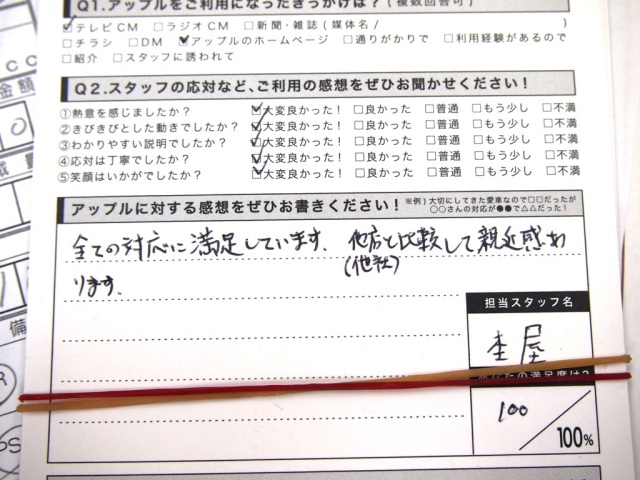 Q1.アップルをご利用になったきっかけは?(複数回答可)
☑テレビCM □ラジオCM □新聞・雑誌(媒体名/ )
□チラシ □DM ☑アップルのホームページ □通りがかりで □利用経験があるので
□紹介 □スタッフに誘われて
Q2.スタッフの応対など、ご利用の感想をぜひお聞かせください!
①熱意を感じましたか? ☑大変良かった! □良かった □普通 □もう少し □不満
②きびきびとした動きでしたか? ☑大変良かった! □良かった □普通 □もう少し □不満
③わかりやすい説明でしたか? ☑大変良かった! □良かった □普通 □もう少し □不満
④応対は丁寧でしたか? ☑大変良かった! □良かった □普通 □もう少し □不満
⑤笑顔はいかがでしたか? ☑大変良かった! □良かった □普通 □もう少し □不満
アップルに対する感想をぜひお書きください!
※例)大切にしてきた愛車なので□□だったが
○○さんの対応が●●で△△だった!
全ての対応に満足しています。他店と比較して親近感あ
(他社)
ります。
担当スタッフ名
あなたの満足度は?
100
100%
金額
備